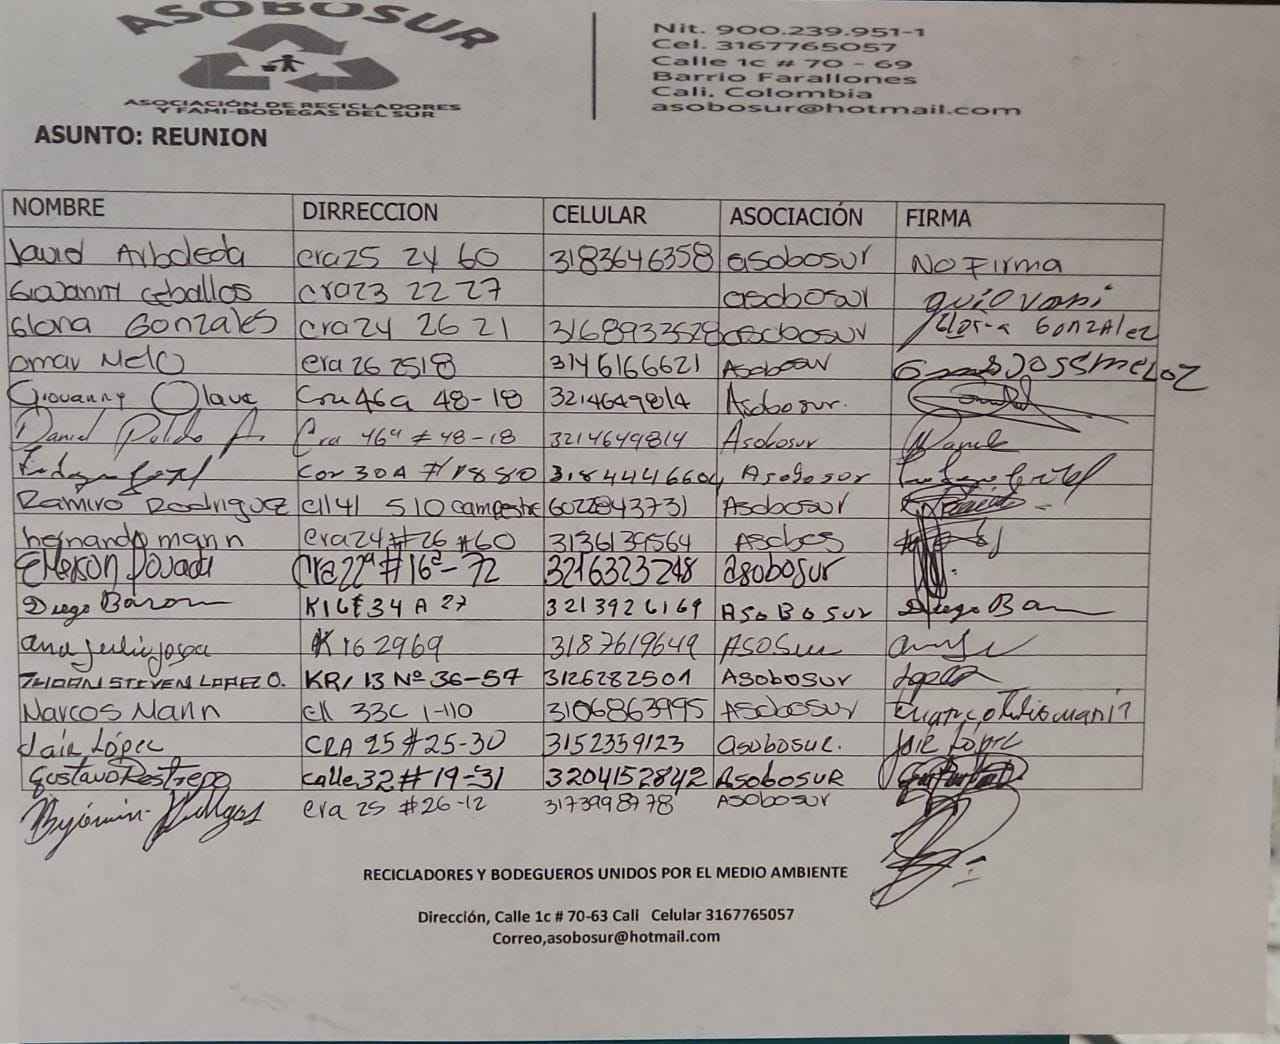 ASOBOSUR
ASOCIACIÓN DE RECICLADORES
Y FAMI-BODEGAS DEL SUR
Nit. 900.239.951-1
Cel. 3167765057
Calle 1c # 70 - 69
Barrio Farallones
Cali. Colombia
asobosur@hotmail.com
ASUNTO: REUNION
NOMBRE DIRRECCION CELULAR ASOCIACIÓN FIRMA
David Arboleda cra25 24 60 3183646358 asobosur NO Firma
Giovanny Ceballos cra23 22 27 asobosur
Gloria Gonzales cra24 26 21 3168933528 asobosur Gloria GonzAlez
omar Melo cra 26 2518 3146166621 Asobosur
Giovanny Olave Cra 46a 48-18 3214649814 Asobosur.
Daniel Cra 46a # 48-18 3214649814 Asobosur
Cor 30A # 18 80 Asobosur
Ramiro Rodriguez cll 41 510 campestre Asobosur
hernando mann cra24 # 26 #60 3136139564 Asobos
Cra 22a # 16a - 72 3216323248 asobosur
Diego Baron 3213926169 AsoBosur Diego Ba
ana julia K 16 2969 3187619649
STIVEN LOPEZ O. KR/ 13 Nº 36-57 3126282501 Asobosur Lopez
Marcos Mann Cll 33C 1-110 3106863995 Asobosur
Jair López CRA 25 # 25-30 3152359123 asobosur. Jair López
Gustavo Restrepo calle 32 # 19-31 3204152842 Asobosur
cra 25 # 26-12 3173998778 Asobosur
RECICLADORES Y BODEGUEROS UNIDOS POR EL MEDIO AMBIENTE
Dirección, Calle 1c # 70-63 Cali Celular 3167765057
Correo,asobosur@hotmail.com